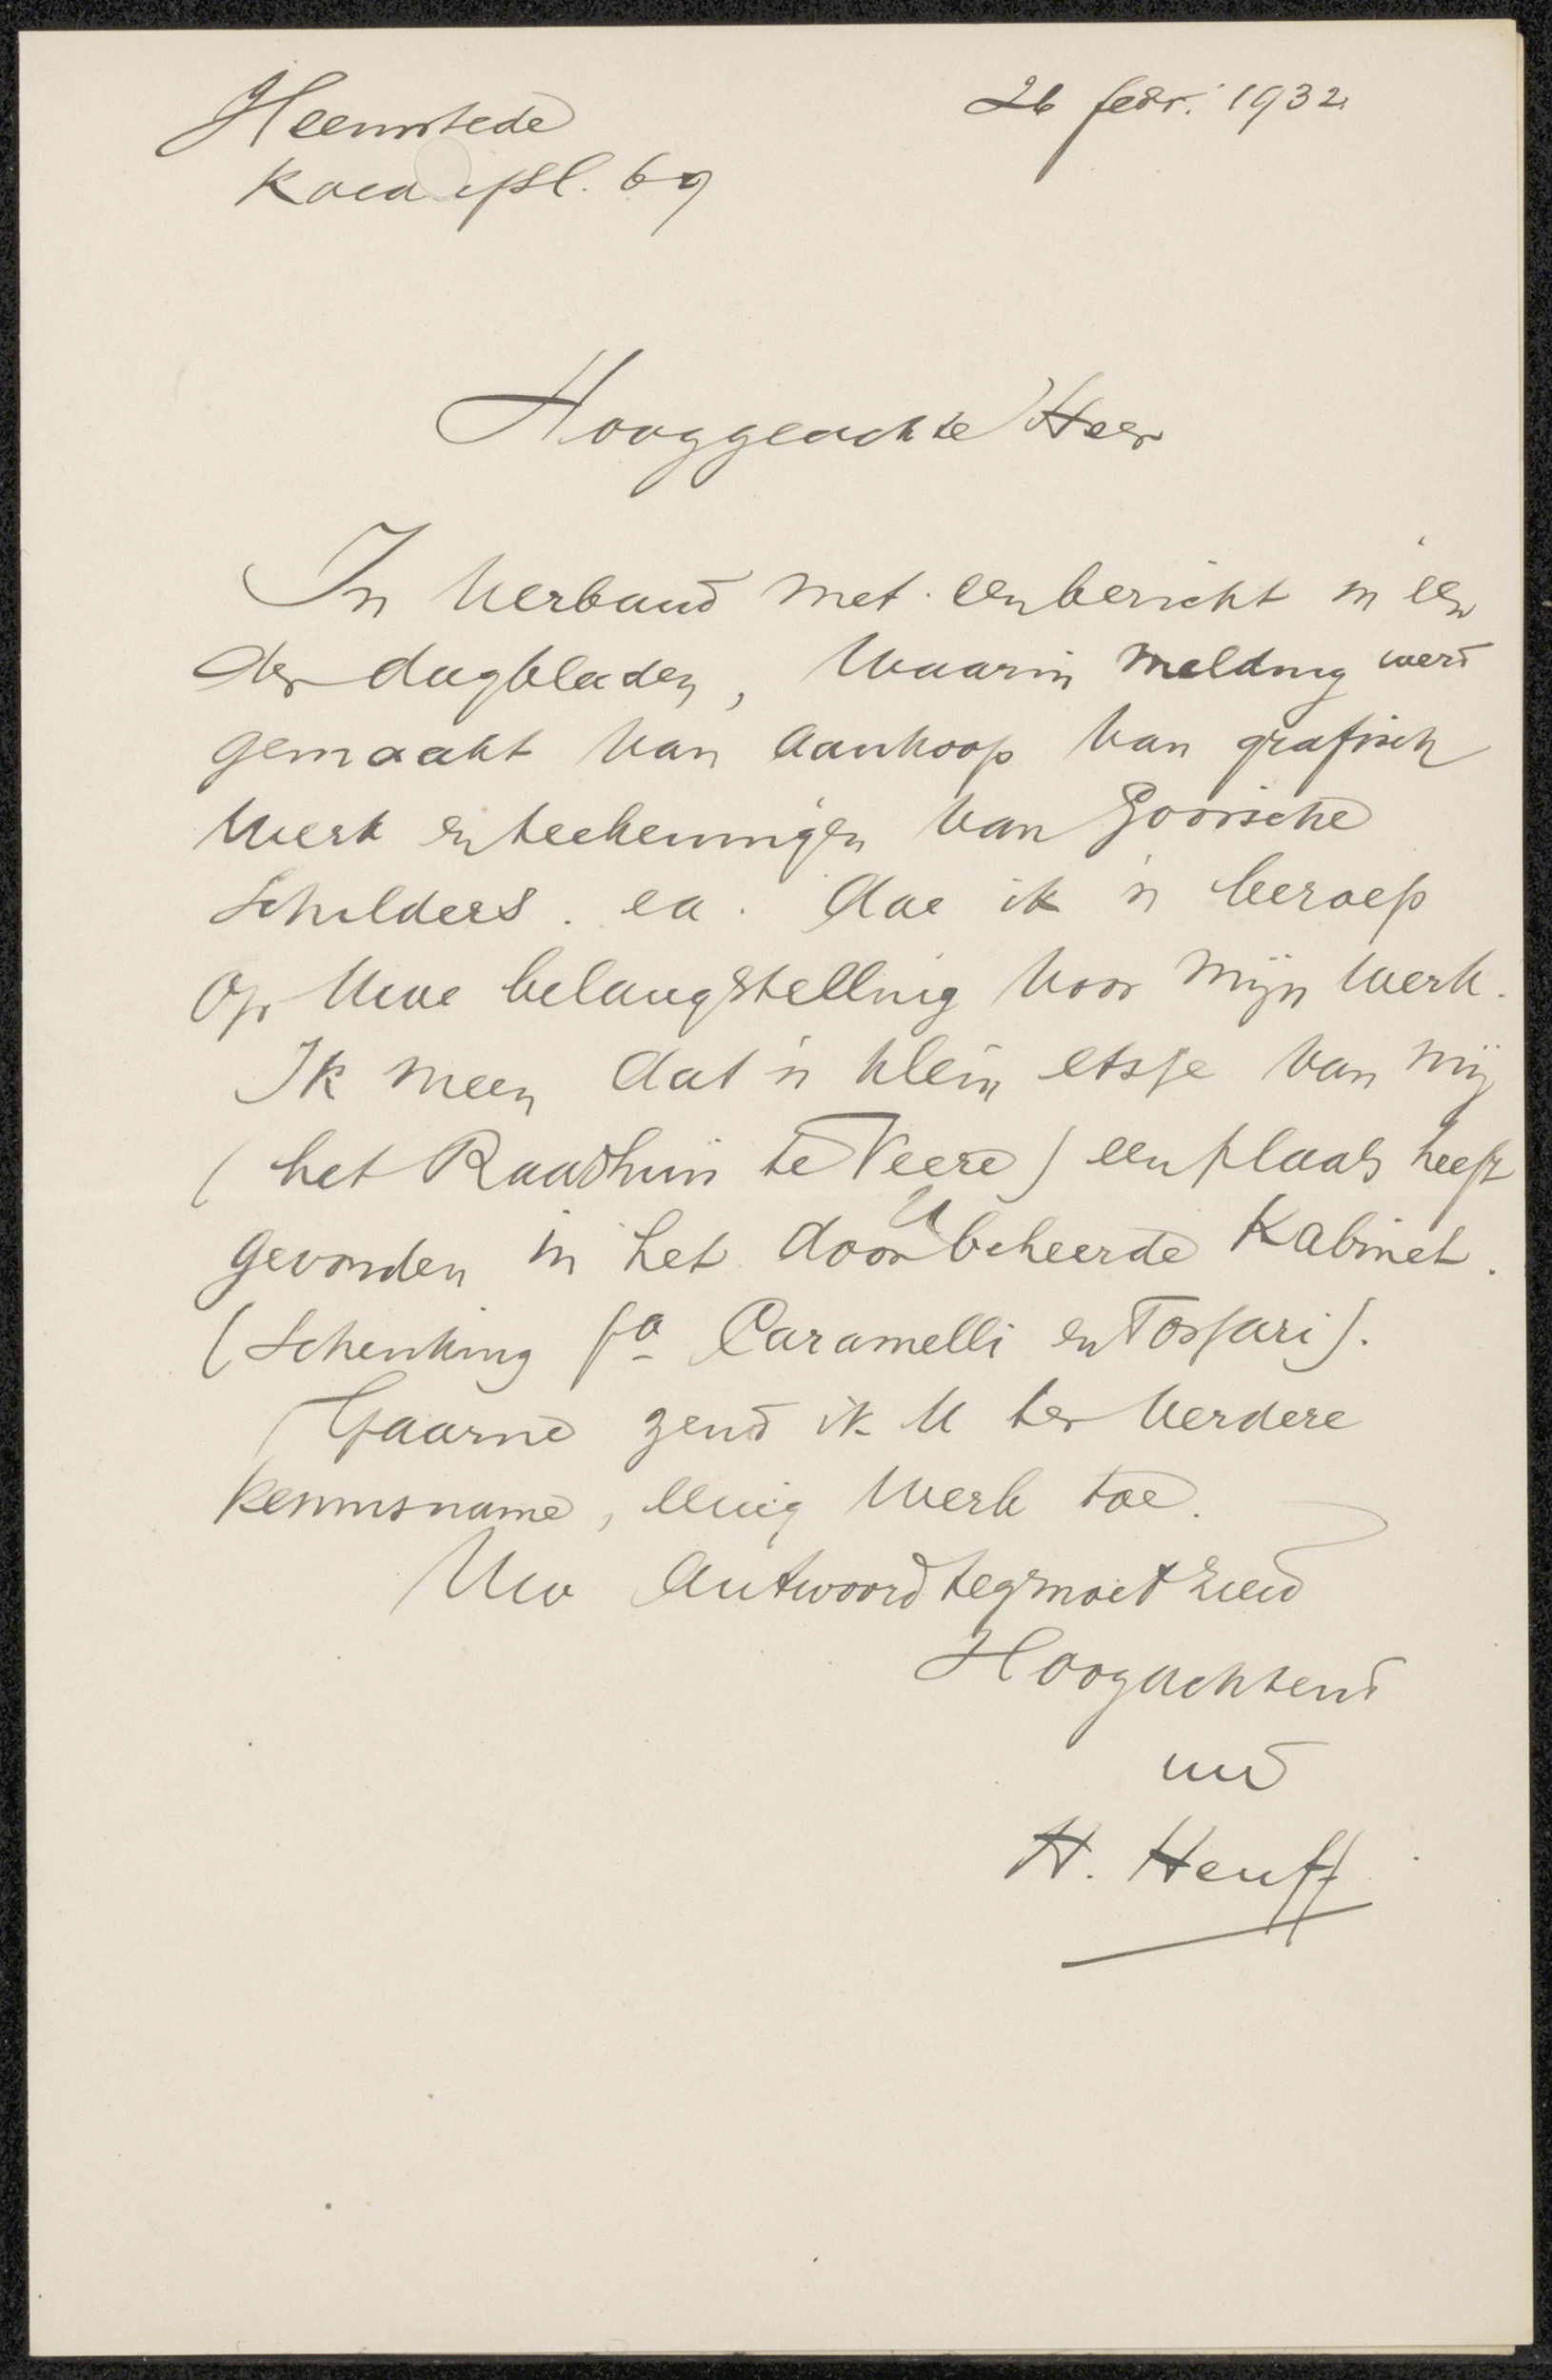 Heemstede
26 febr. 1932
69
Hooggeachte Heer
In verband met een bericht in een
der dagbladen, waarin melding werd
gemaakt van aankoop van grafisch
werk en teekeningen van Gooische
Schilders. ea. doe ik 'n beroep
op Uwe belangstelling voor mijn werk.
Ik meen dat 'n klein etsje van mij
(het Raadhuis te Veere) een plaats heeft
gevonden in het door U beheerde Kabinet.
(Schenking fa Caramelli en Tessari).
Gaarne zend ik U ter verdere
kennisname, eenig werk toe.
Uw antwoord tegemoet ziend
Hoogachtend
uwd
H. Heuff